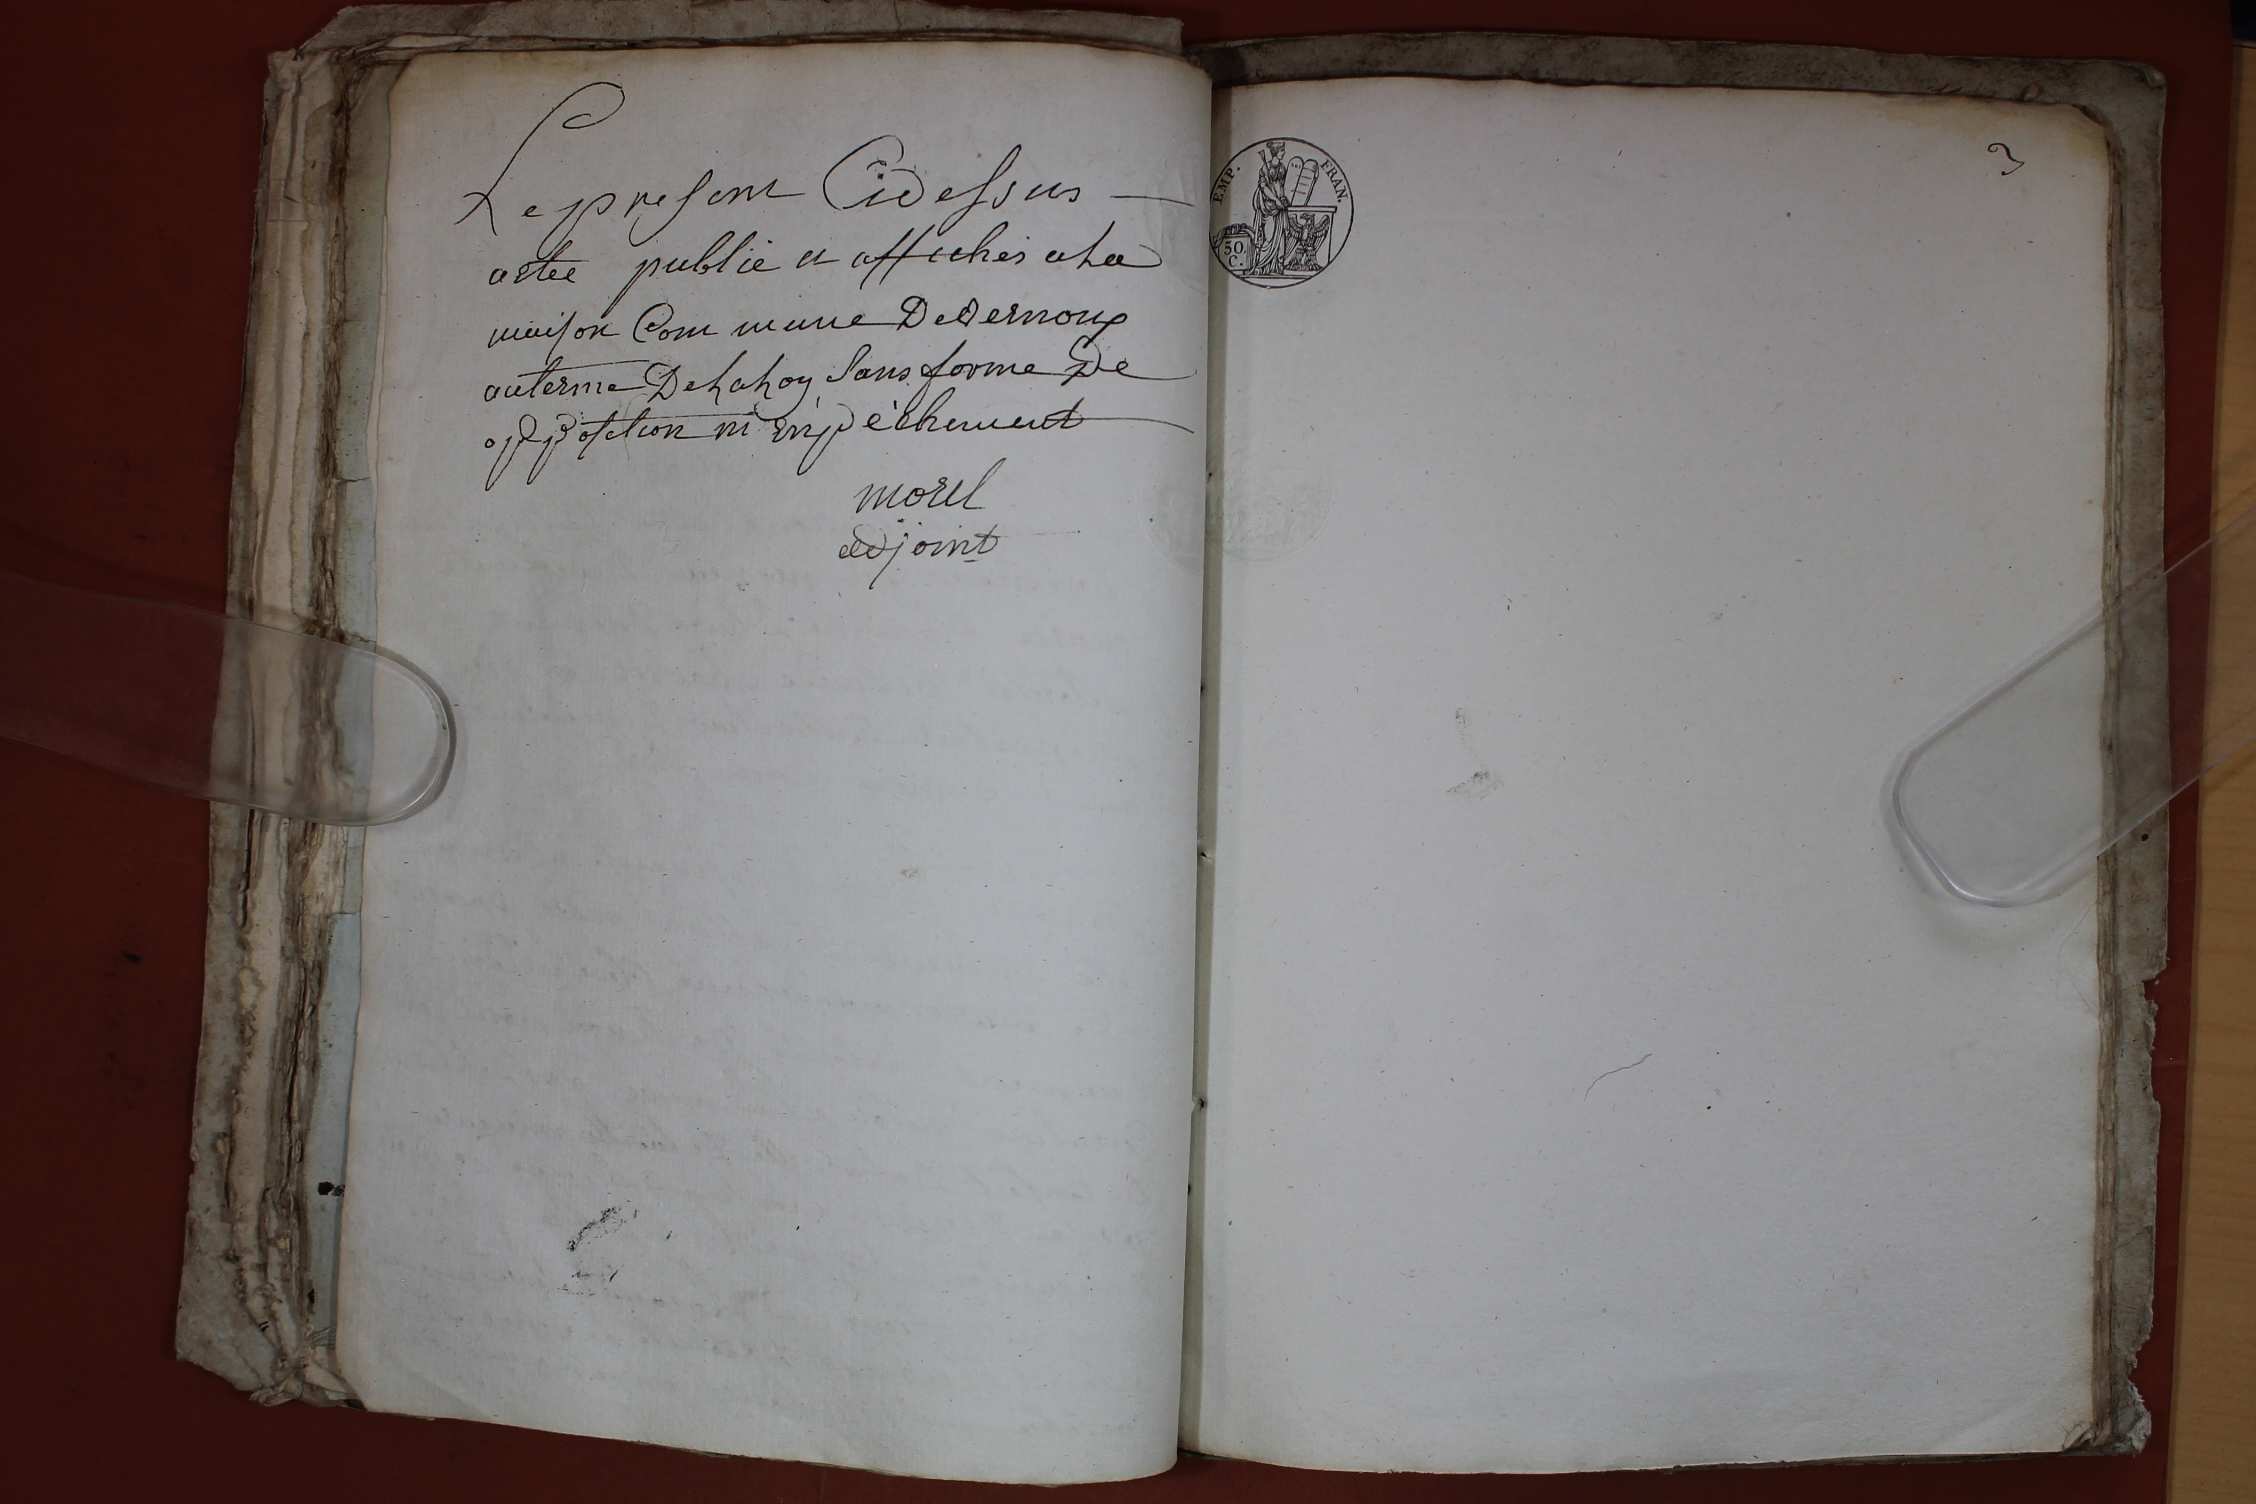 Le present Cidessus
astee publië et affichés a la
maison Commune De Vernoux
auterme De la loy Sans forme De
opposition ni Enpêchement
morel
adjoint
EMP. FRAN.
50
C.
3